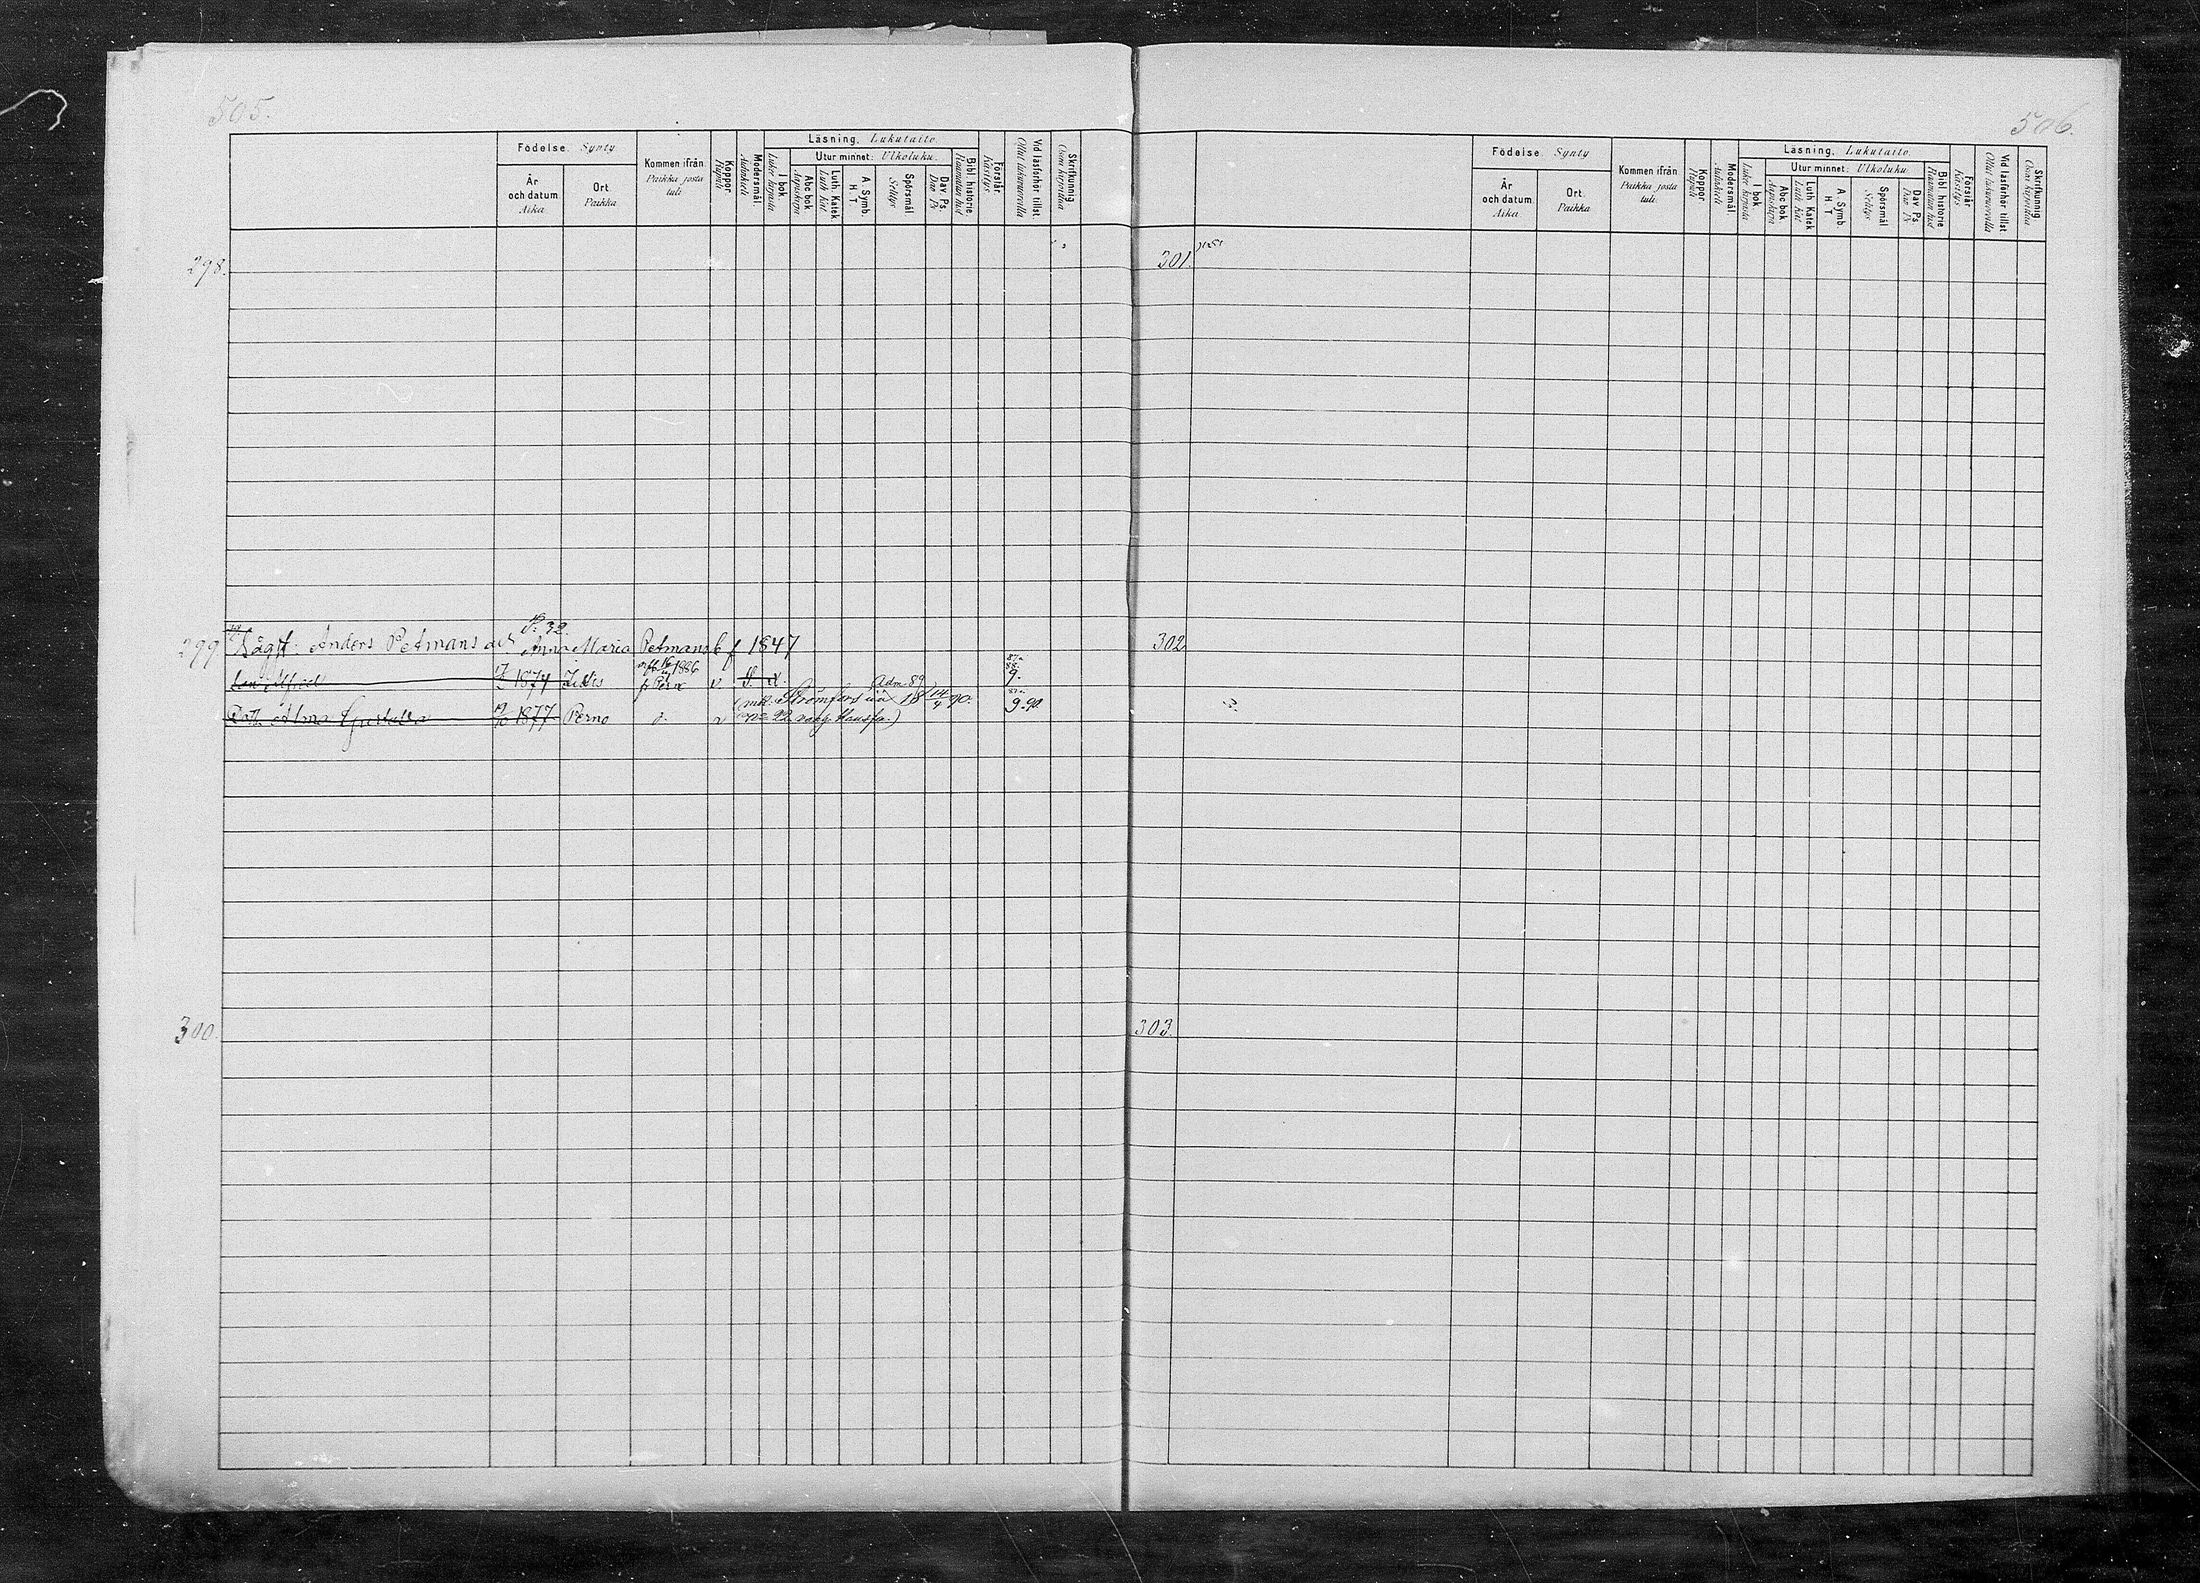 505.
Födelse. Synty
Kommen ifrån. Paikka josta tuli
Koppor. Rupuli
Modersmål. Äidinkieli
Läsning. Lukutaito.
Utur minnet: Ulkoluku.
År och datum. Aika
Ort. Paikka
I bok. Lukee kirjasta
Abc bok. Aapiskirja
Luth Katek Luth Kat.
A. Symb. H T
Spörsmål Selitys
Dav. Ps. Dav Ps
Bibl. historie Raamatun hist
Förstår. Käsitys
Vid läsförhör tillst. Ollut lukuvuoroilla
Skrifkunnig Osaa kirjoittaa
298.
P. 32.
299 Anders Petmans Anna Maria Petmans f 1847
Son Alfred 1874 1886 fr Perno v. Adm. 89 9.
Dott. Alma Gustava 1877 Perno v Strömfors 18 14/4 90. N:o 22 9. 90.
300.
506.
Födelse. Synty
Kommen ifrån. Paikka josta tuli.
Koppor. Rupuli
Modersmål. Äidinkieli
Läsning. Lukutaito.
Utur minnet: Ulkoluku.
År och datum. Aika
Ort. Paikka
I bok. Lukee kirjasta
Abc bok. Aapiskirja
Luth Katek Luth Kat.
A. Symb H T
Spörsmål Selitys
Dav. Ps. Dav Ps
Bibl. historie Raamatun hist
Förstår Käsitys
Vid läsförhör tillst Ollut lukuvuoroilla
Skrifkunnig Osaa kirjoittaa
301.
302
303.